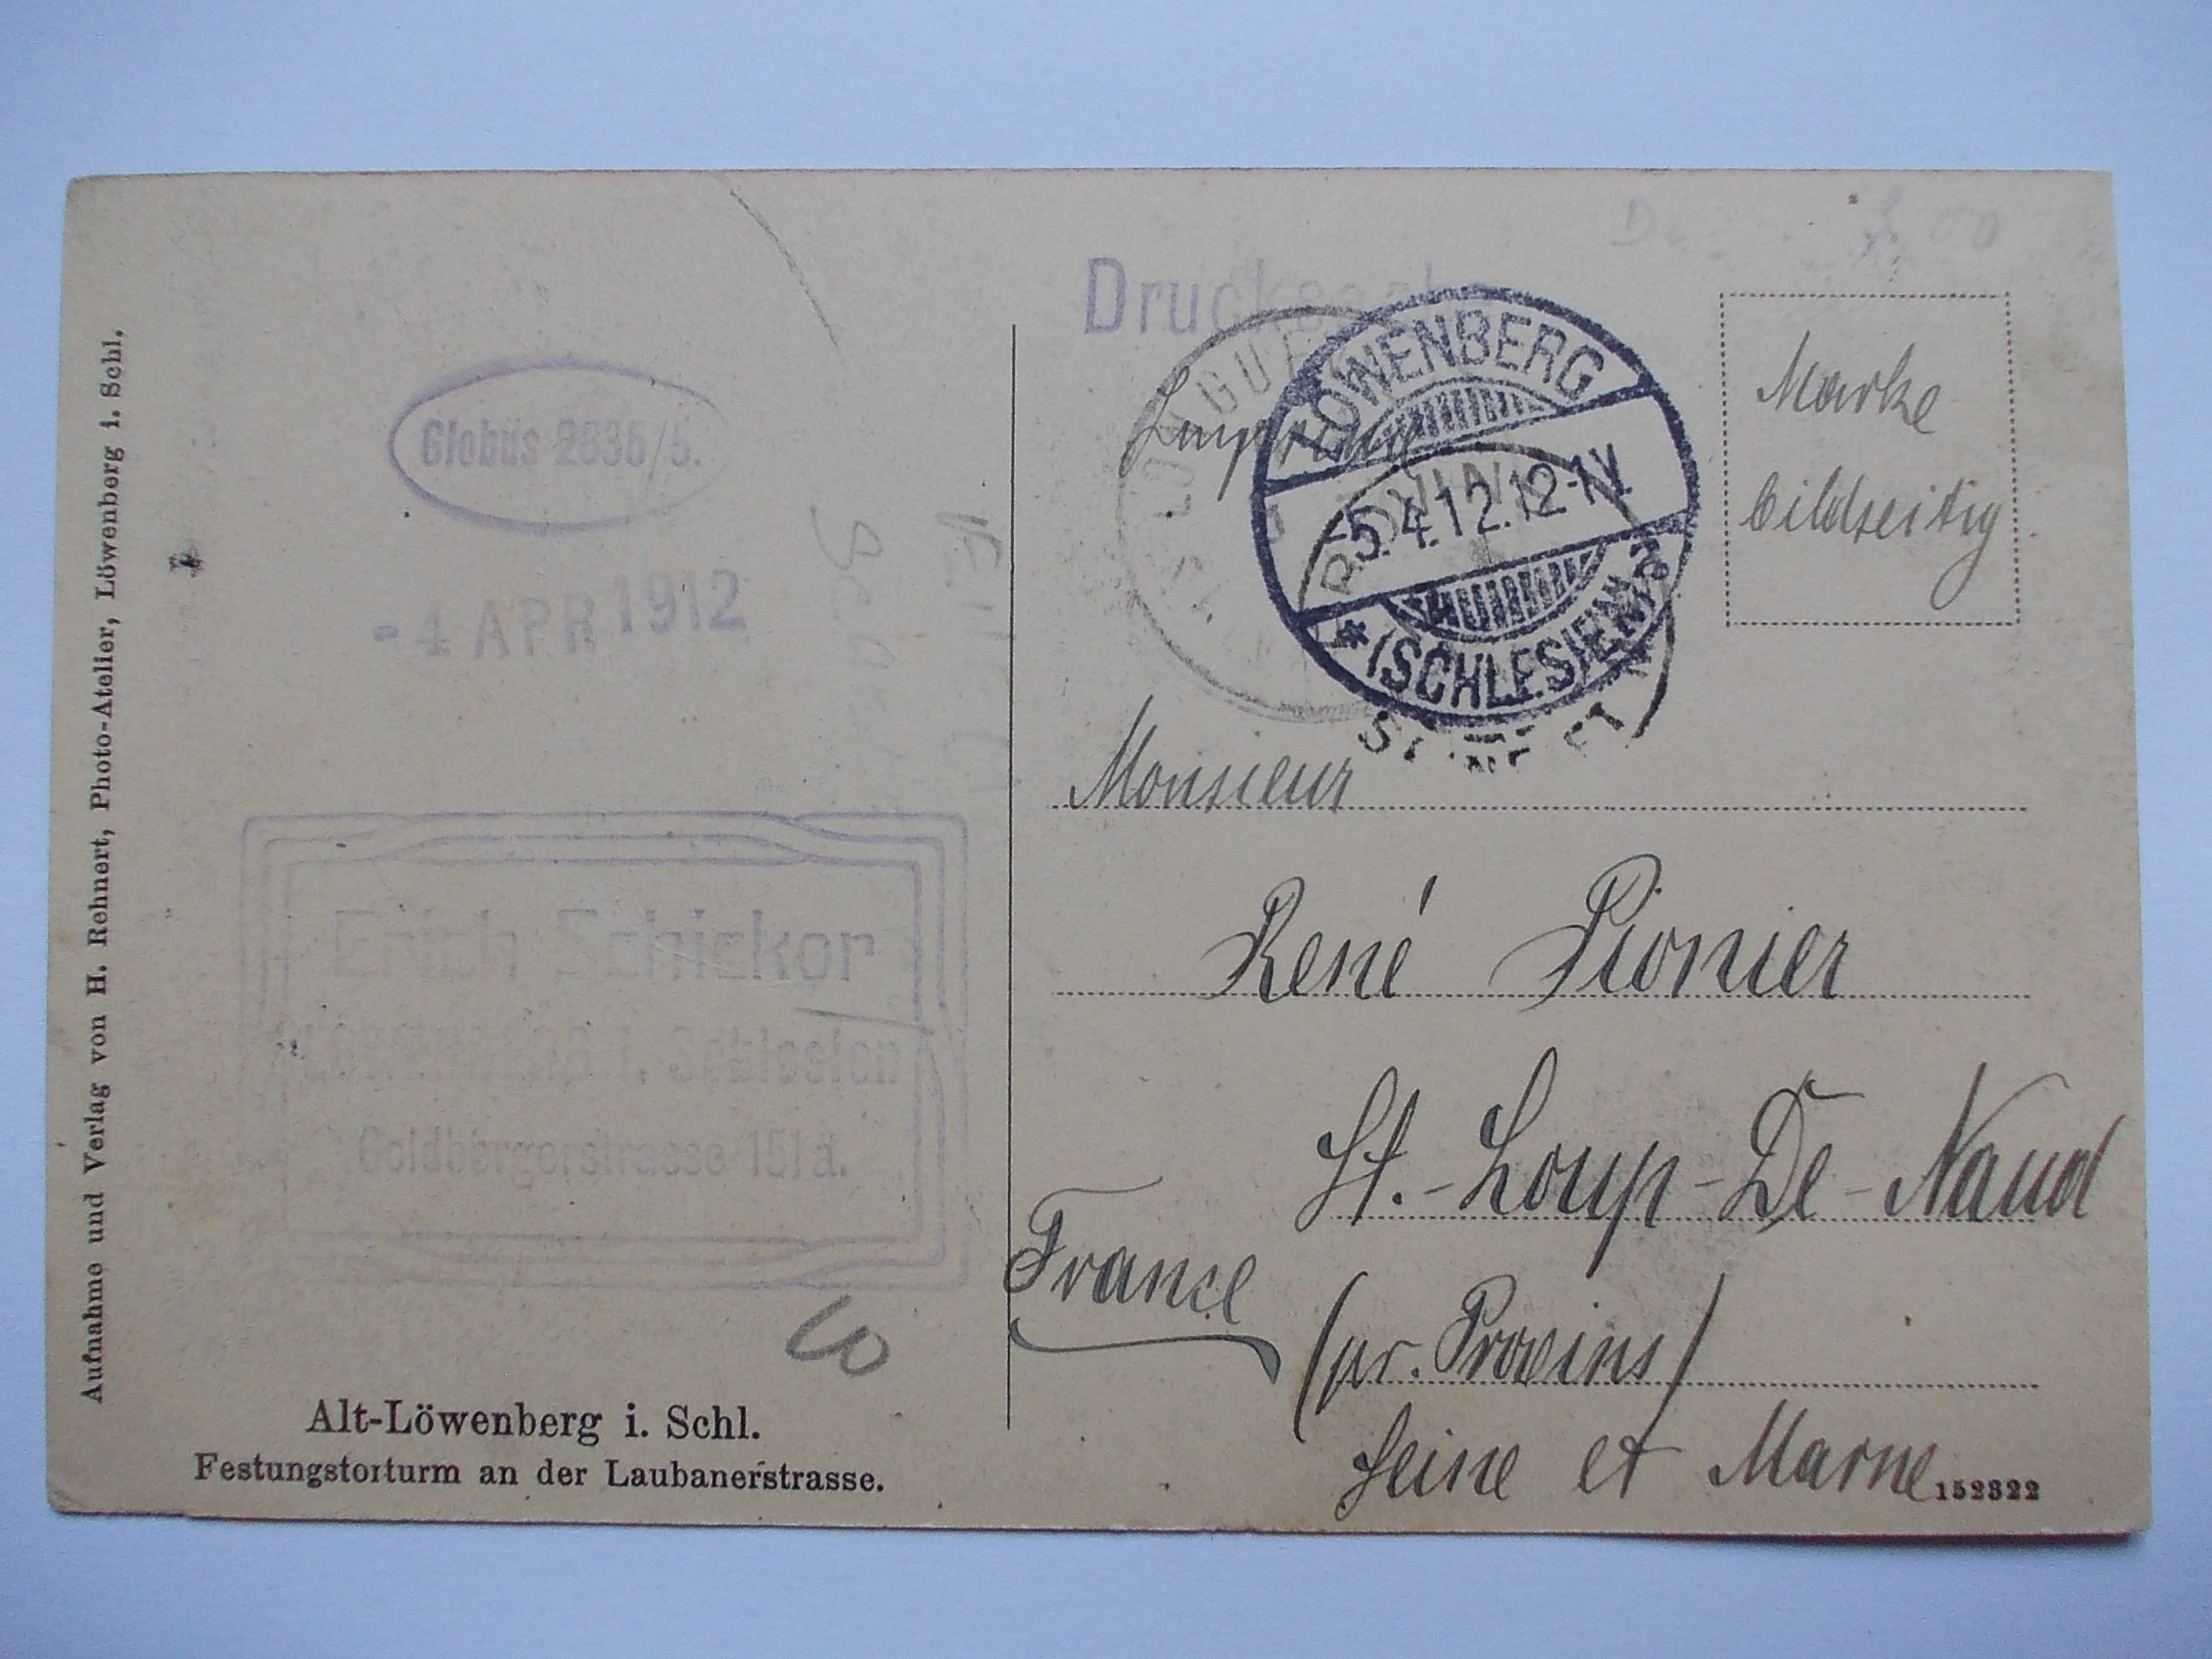 Aufnahme und Verlag von H. Rehnert, Photo-Atelier, Löwenberg i. Schl.
Globus 2635/5.
-4 APR 1912
Erich Schickor
i. Schlesien
Goldbergerstrasse 151a.
Alt-Löwenberg i. Schl.
Festungstorturm an der Laubanerstrasse.
Drucksache
LÖWENBERG
-5.4.12.12-1V.
* (SCHLESIEN) a
PROVINS
Marke
bildseitig
Monsieur
René Pionier
St.-Loup-De-Naud
France
(pr. Provins)
Seine et Marne
152322